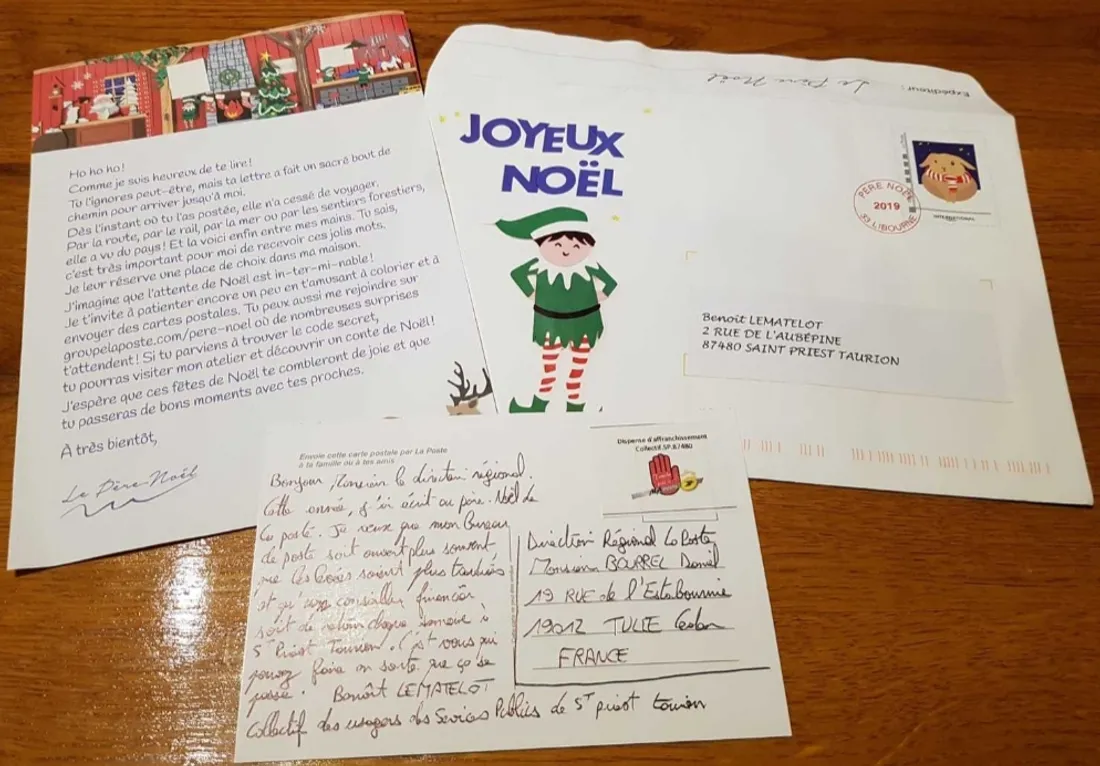 Ho ho ho!
Comme je suis heureux de te lire!
Tu l'ignores peut-être, mais ta lettre a fait un sacré bout de
chemin pour arriver jusqu'à moi.
Dès l'instant où tu l'as postée, elle n'a cessé de voyager.
Par la route, par le rail, par la mer ou par les sentiers forestiers,
elle a vu du pays! Et la voici enfin entre mes mains. Tu sais,
c'est très important pour moi de recevoir ces jolis mots.
Je leur réserve une place de choix dans ma maison.
J'imagine que l'attente de Noël est in-ter-mi-nable!
Je t'invite à patienter encore un peu en t'amusant à colorier et à
envoyer des cartes postales. Tu peux aussi me rejoindre sur
groupelaposte.com/pere-noel où de nombreuses surprises
t'attendent! Si tu parviens à trouver le code secret,
tu pourras visiter mon atelier et découvrir un conte de Noël!
J'espère que ces fêtes de Noël te combleront de joie et que
tu passeras de bons moments avec tes proches.
À très bientôt,
Le Père Noël
Expéditeur: Le Père Noël
JOYEUX
NOËL
PÈRE NOËL
2019
33 LIBOURNE
INTERNATIONALE
Benoit LEMATELOT
2 RUE DE L'AUBÉPINE
87480 SAINT PRIEST TAURION
Envoie cette carte postale par La Poste
à ta famille ou à tes amis
Bonjour, Monsieur le directeur régional.
Cette année, j'ai écrit au père-Noël de
la poste. Je veux que mon bureau
de poste soit ouvert plus souvent,
que les levées soient plus tardives
et qu'un conseiller financier
soit de retour chaque semaine à
St Priest Taurion. C'est vous qui
pouvez faire en sorte que ça se
passe. Benoît LEMATELOT
Collectif des usagers des Services Publics de ST priest taurion
Dispense d'affranchissement
Collectif.SP.87480
Direction Régional La Poste
Monsieur BOURREL Daniel
19 RUE de l'Estabournie
19012 TULLE Cedex
FRANCE